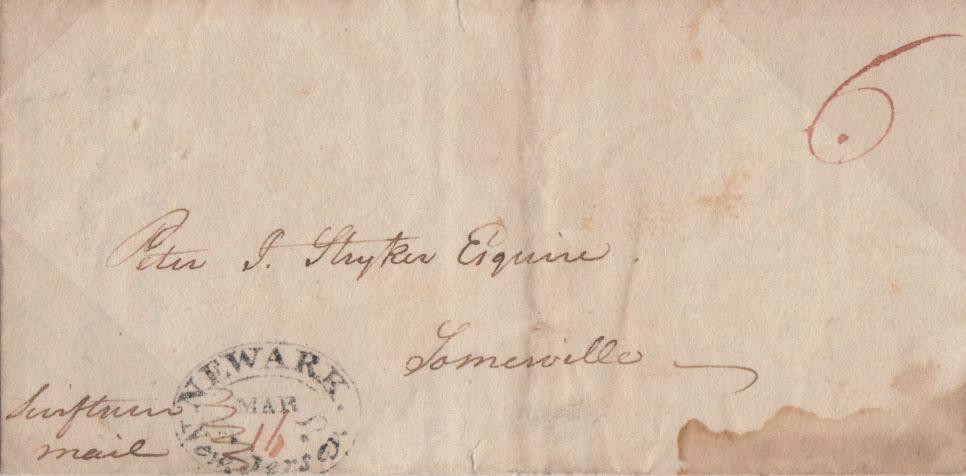 6
Peter I. Stryker Esquire.
Somerville
NEWARK.
MAR
16
New Jersey.
mail